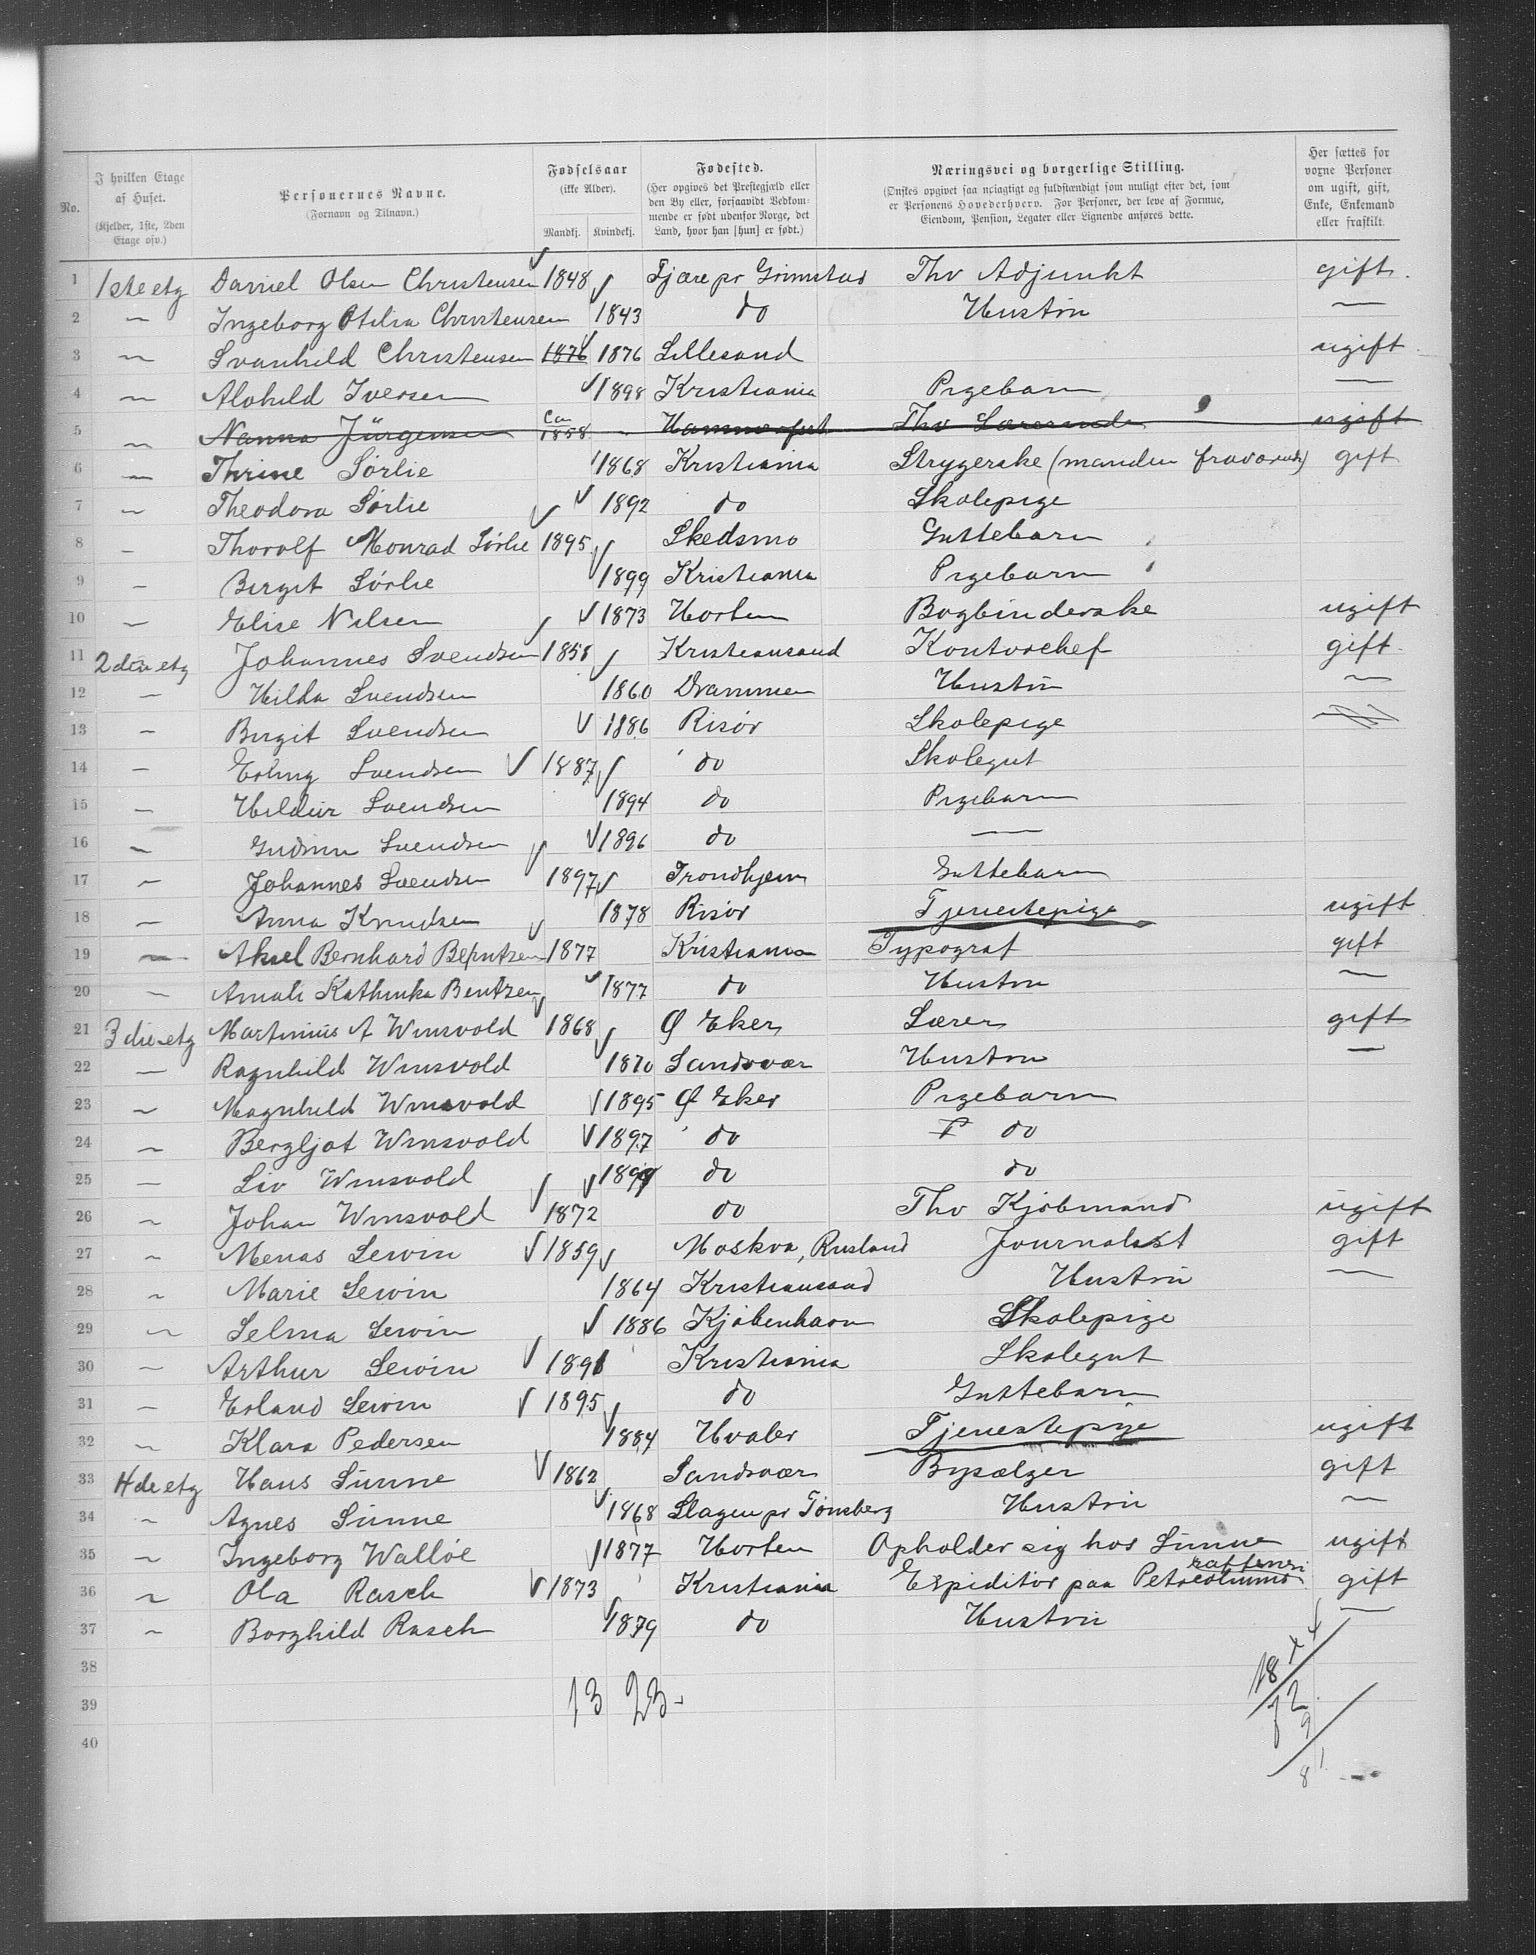 No. | I hvilken Etage af Huset. (Kjelder, 1ste, 2den Etage osv.) | Personernes Navne. (Fornavn og Tilnavn.) | Fødselsaar (ikke Alder). Mandkj. | Kvindekj. | Fødested. (Her opgives det Prestegjæld eller den By eller, forsaavidt Bedkommende er født udenfor Norge, det Land, hvor han [hun] er født.) | Næringsvei og borgerlige Stilling. (Ønskes opgivet saa nøiagtigt og fuldstændigt som muligt efter det, som er Personens Hovederhverv. For Personer, der leve af Formue, Eiendom, Pension, Legater eller Lignende anføres dette. | Her sættes for vorne Personer om ugift, gift, Enke, Enkemand eller fraskilt.
1 1ste etg Daniel Olsen Christensen 1848 Fjære pr Grimstad Fhv Adjunkt gift.
2 — Ingeborg Otilia Christensen 1843 do Hustru —
3 — Svanhild Christensen 1876 1876 Lillesand ugift
4 — Alvhild Iversen 1898 Kristiania Pigebarn —
5 — Nanna Jürgensen Ca 1858 Hammerfest Fhv Lærerinde ugift
6 — Thrine Sørlie 1868 Kristiania Strygerske (manden fraværende) gift
7 — Theodora Sørlie 1892 do Skolepige
8 — Thorolf Monrad Sørlie 1895 Skedsmo Guttebarn
9 — Birgit Sørlie 1899 Kristiania Pigebarn
10 — Elise Nilsen 1873 Horten Bogbinderske ugift
11 2den etg Johannes Svendsen 1858 Kristiansand Kontorchef gift
12 — Hilda Svendsen 1860 Drammen Hustru —
13 — Birgit Svendsen 1886 Risør Skolepige
14 — Erling Svendsen 1887 do Skolegut
15 — Hildur Svendsen 1894 do Pigebarn
16 — Gudrun Svendsen 1896 do —
17 — Johannes Svendsen 1897 Trondhjem Guttebarn
18 — Anna Knudsen 1878 Risør Tjenestepige ugift
19 — Aksel Bernhard Berntzen 1877 Kristiania Typograf gift
20 — Amali Kathinka Bentzen 1877 do Hustru —
21 3die etg Martinius A Winsvold 1868 Ø Eker Lærer gift
22 — Ragnhild Winsvold 1870 Sandsvær Hustru —
23 — Magnhild Winsvold 1895 Ø Eker Pigebarn
24 — Bergljot Winsvold 1897 do P do
25 — Liv Winsvold 1899 do do
26 — Johan Winsvold 1872 do Fhv Kjøbmand ugift
27 — Menas Lewin 1859 Moskva, Rusland Journalist gift
28 — Marie Lewin 1864 Kristiansand Hustru —
29 — Selma Lewin 1886 Kjøbenhavn Skolepige
30 — Arthur Lewin 1891 Kristiania Skolegut
31 — Erland Lewin 1895 do Guttebarn
32 — Klara Pedersen 1884 Hvaler Tjenestepige ugift
33 4de etg Hans Sunne 1862 Sandsvær Bysælger gift
34 — Agnes Sunne 1868 Slagen pr Tønsberg Hustru —
35 — Ingeborg Walløe 1877 Horten Opholder sig hos Sunne ugift
36 — Ola Rasch 1873 Kristiania Expeditør paa Petroleums raffineri gift
37 — Borghild Rasch 1879 do Hustru —
38
39 13 23.
40
18 x 4
72
9
81